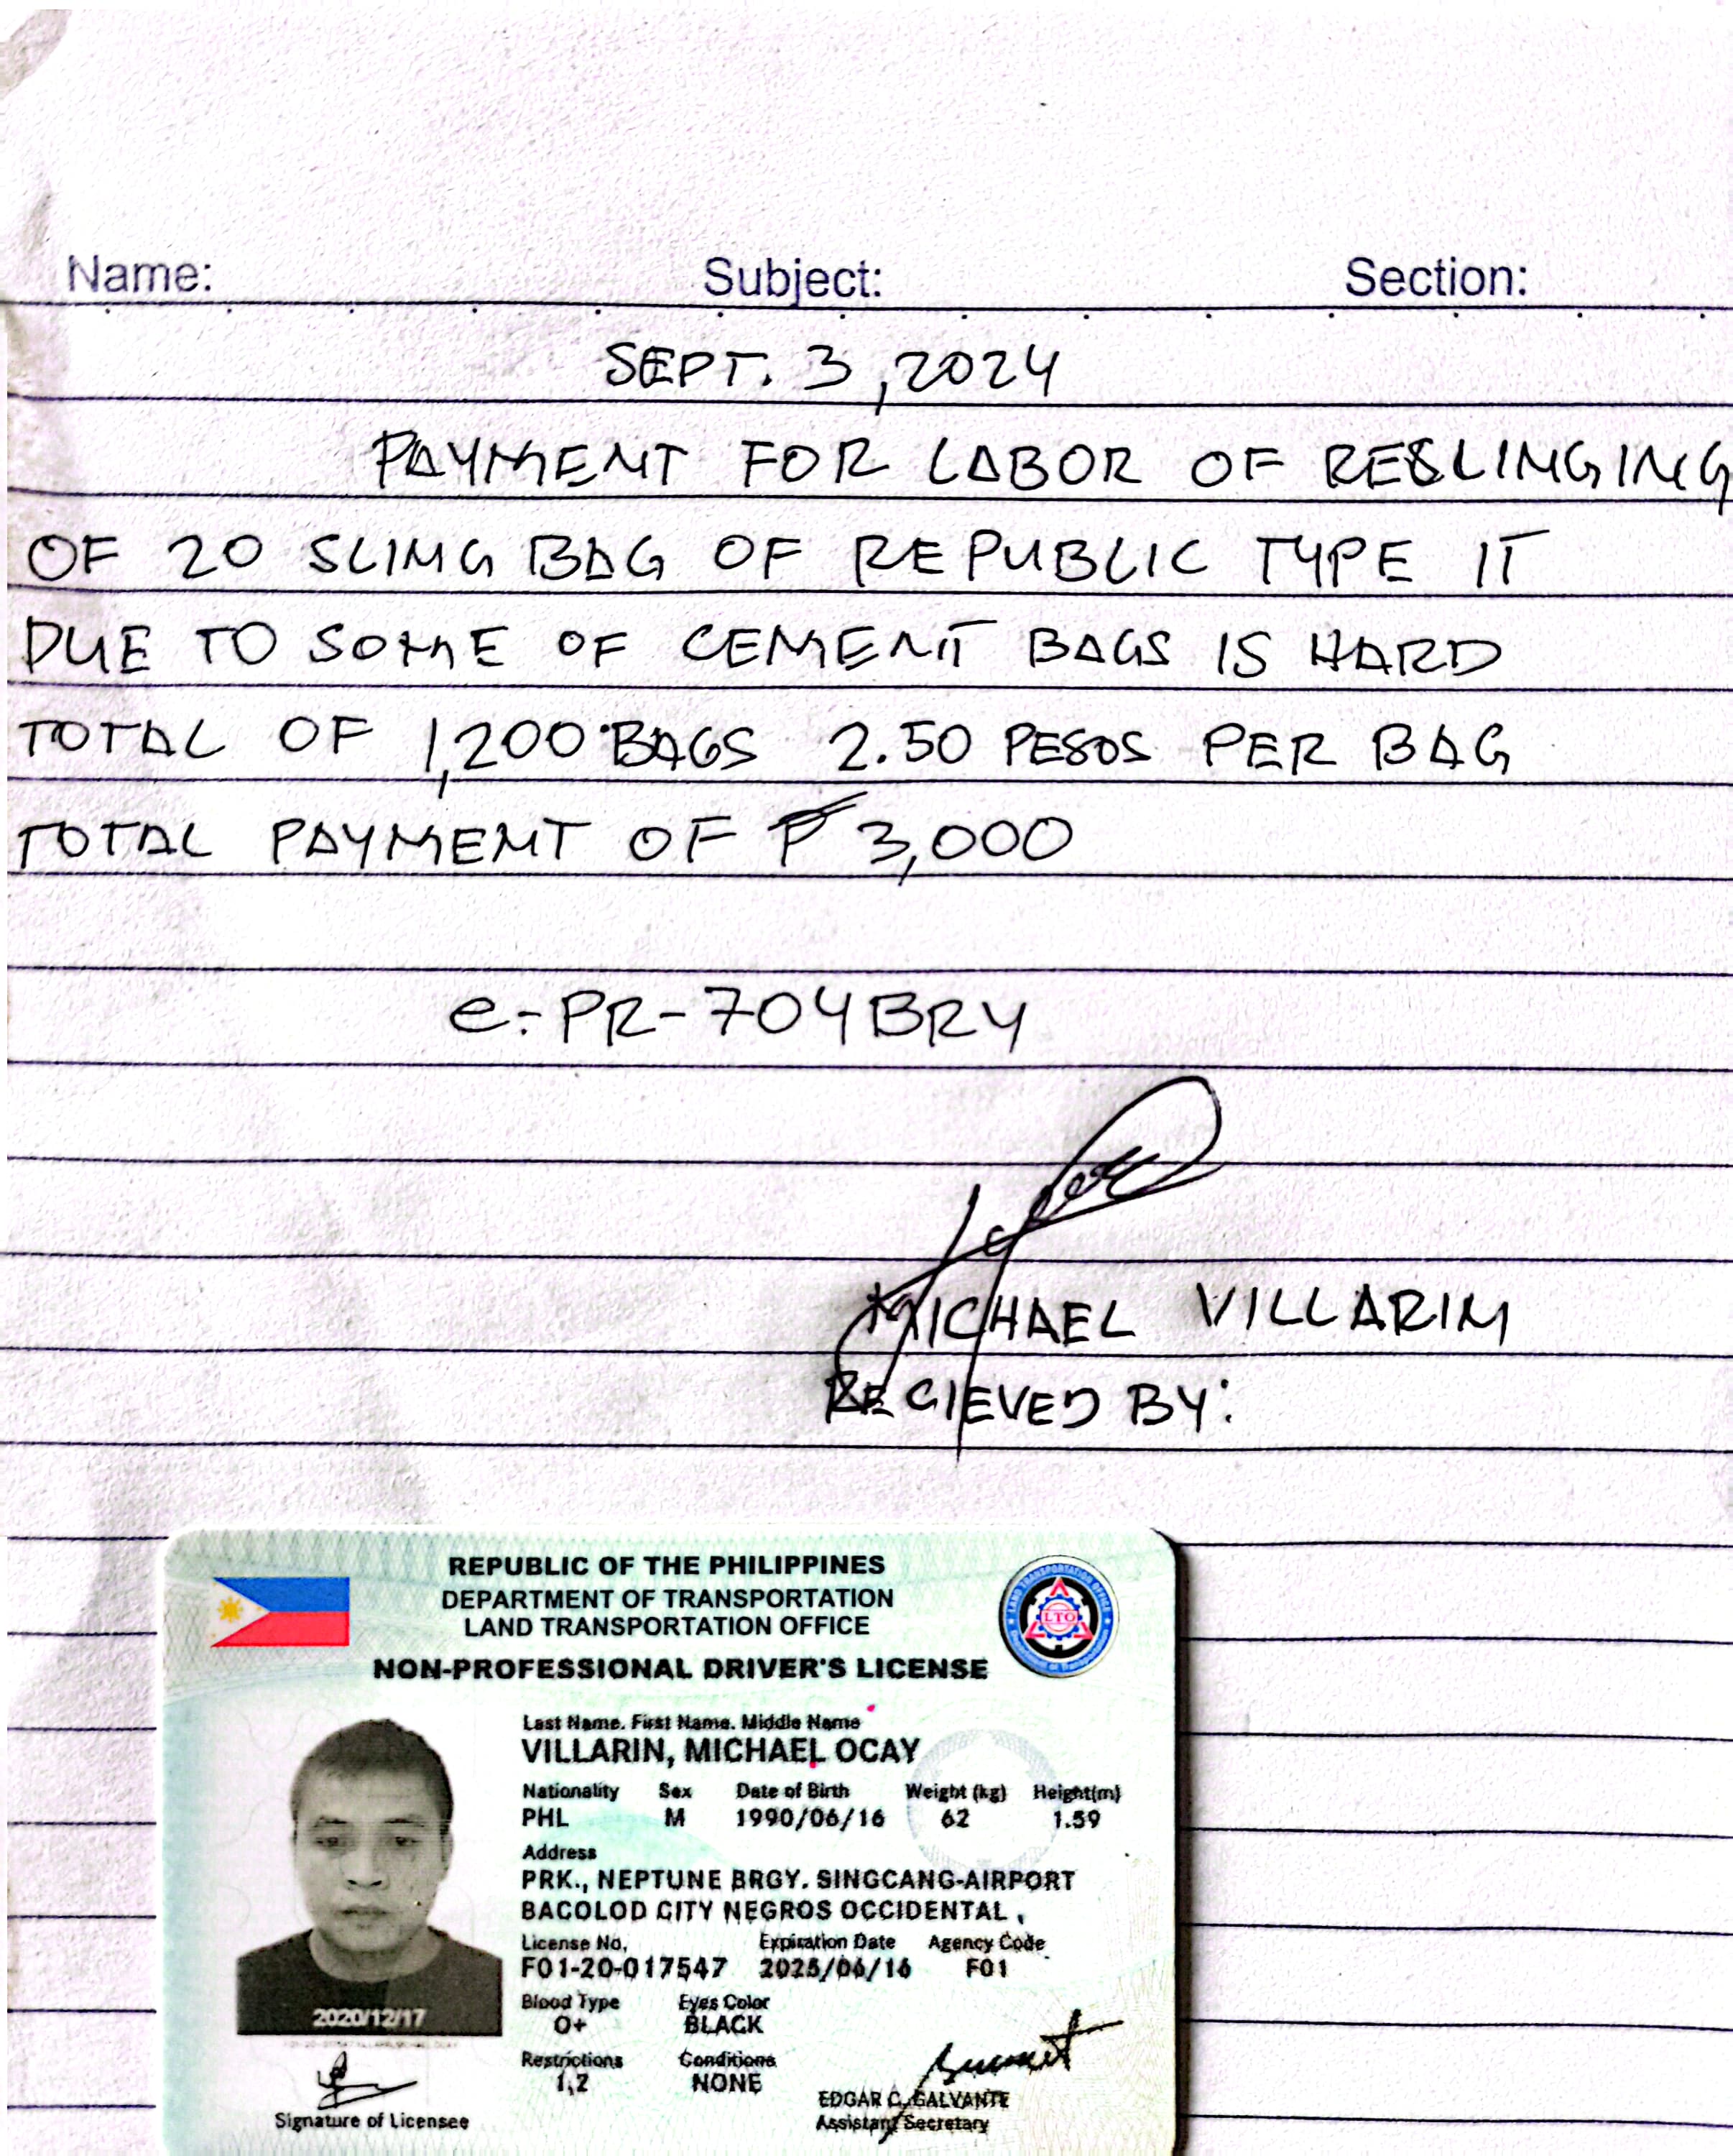 Name: Subject: Section:
SEPT. 3, 2024
PAYMENT FOR LABOR OF RESLINGING
OF 20 SLING BAG OF REPUBLIC TYPE IT
DUE TO SOME OF CEMENT BAGS IS HARD
TOTAL OF 1,200 BAGS 2.50 PESOS PER BAG
TOTAL PAYMENT OF ₱ 3,000
e-PR-704BRY
MICHAEL VILLARIN
RECIEVED BY:
REPUBLIC OF THE PHILIPPINES
DEPARTMENT OF TRANSPORTATION
LAND TRANSPORTATION OFFICE
LTO
NON-PROFESSIONAL DRIVER'S LICENSE
Last Name. First Name. Middle Name
VILLARIN, MICHAEL OCAY
Nationality Sex Date of Birth Weight (kg) Height(m)
PHL M 1990/06/16 62 1.59
Address
PRK., NEPTUNE BRGY. SINGCANG-AIRPORT
BACOLOD CITY NEGROS OCCIDENTAL ,
License No. Expiration Date Agency Code
F01-20-017547 2025/06/16 F01
Blood Type Eyes Color
O+ BLACK
Restrictions Conditions
1,2 NONE
2020/12/17
Signature of Licensee
EDGAR C. GALVANTE
Assistant Secretary